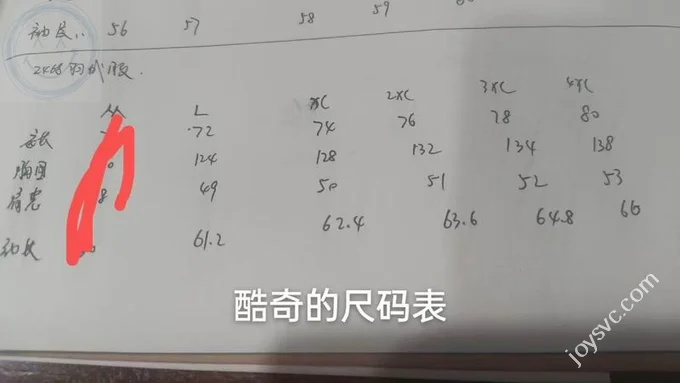 袖长 56 57 58 59
2468羽绒服.
M L XL 2XL 3XL 4XL
衣长 72 74 76 78 80
胸围 124 128 132 134 138
肩宽 8 49 50 51 52 53
袖长 61.2 62.4 63.6 64.8 66
酷奇的尺码表
joysvc.com